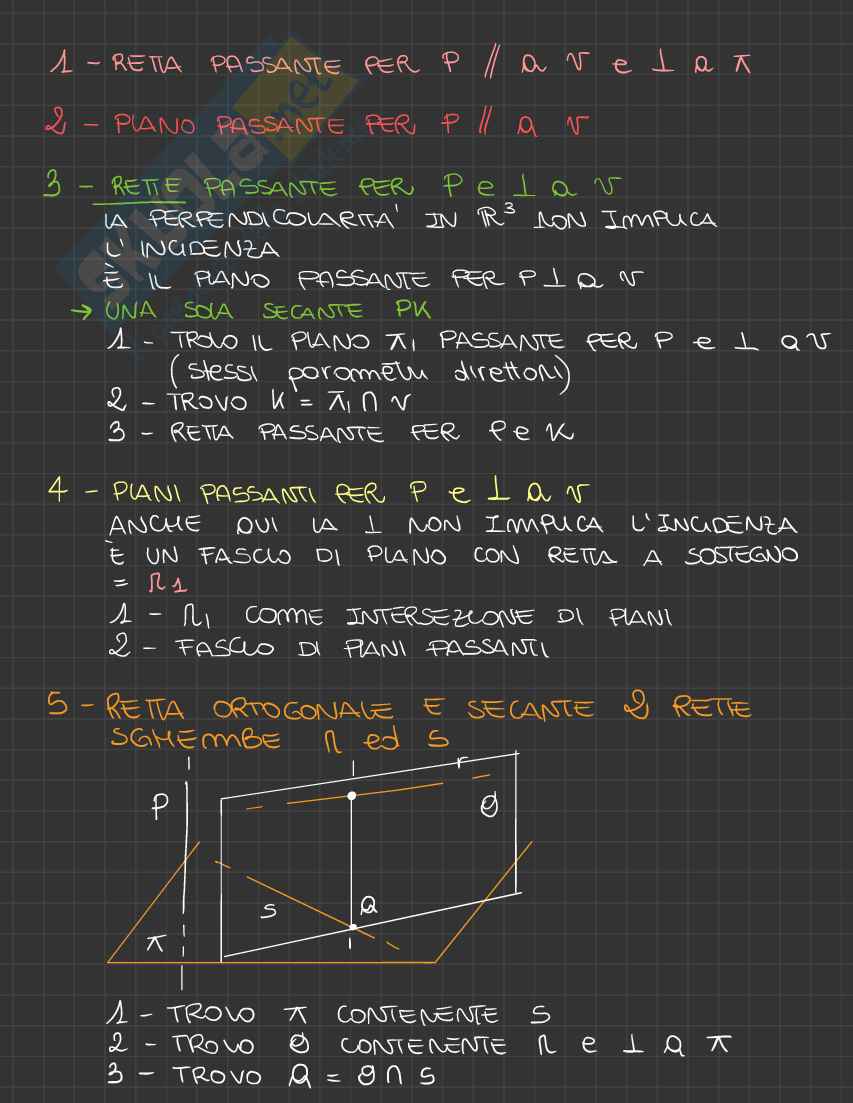 1 - RETTA PASSANTE PER P // a r e ⊥ a π
2 - PIANO PASSANTE PER P // a r
3 - RETTE PASSANTE PER P e ⊥ a r
LA PERPENDICOLARITA' IN ℝ³ NON IMPLICA
L'INCIDENZA
È IL PIANO PASSANTE PER P ⊥ a r
→ UNA SOLA SECANTE PK
1 - TROVO IL PIANO π₁ PASSANTE PER P e ⊥ a r
(stessi parametri direttori)
2 - TROVO K = π₁ ∩ r
3 - RETTA PASSANTE PER P e K
4 - PIANI PASSANTI PER P e ⊥ a r
ANCHE QUI LA ⊥ NON IMPLICA L'INCIDENZA
È UN FASCIO DI PIANO CON RETTA A SOSTEGNO
= r₁
1 - r₁ COME INTERSEZIONE DI PIANI
2 - FASCIO DI PIANI PASSANTI
5 - RETTA ORTOGONALE E SECANTE 2 RETTE
SGHEMBE r ed s
r
P
θ
s
Q
π
1 - TROVO π CONTENENTE s
2 - TROVO θ CONTENENTE r e ⊥ a π
3 - TROVO Q = θ ∩ s